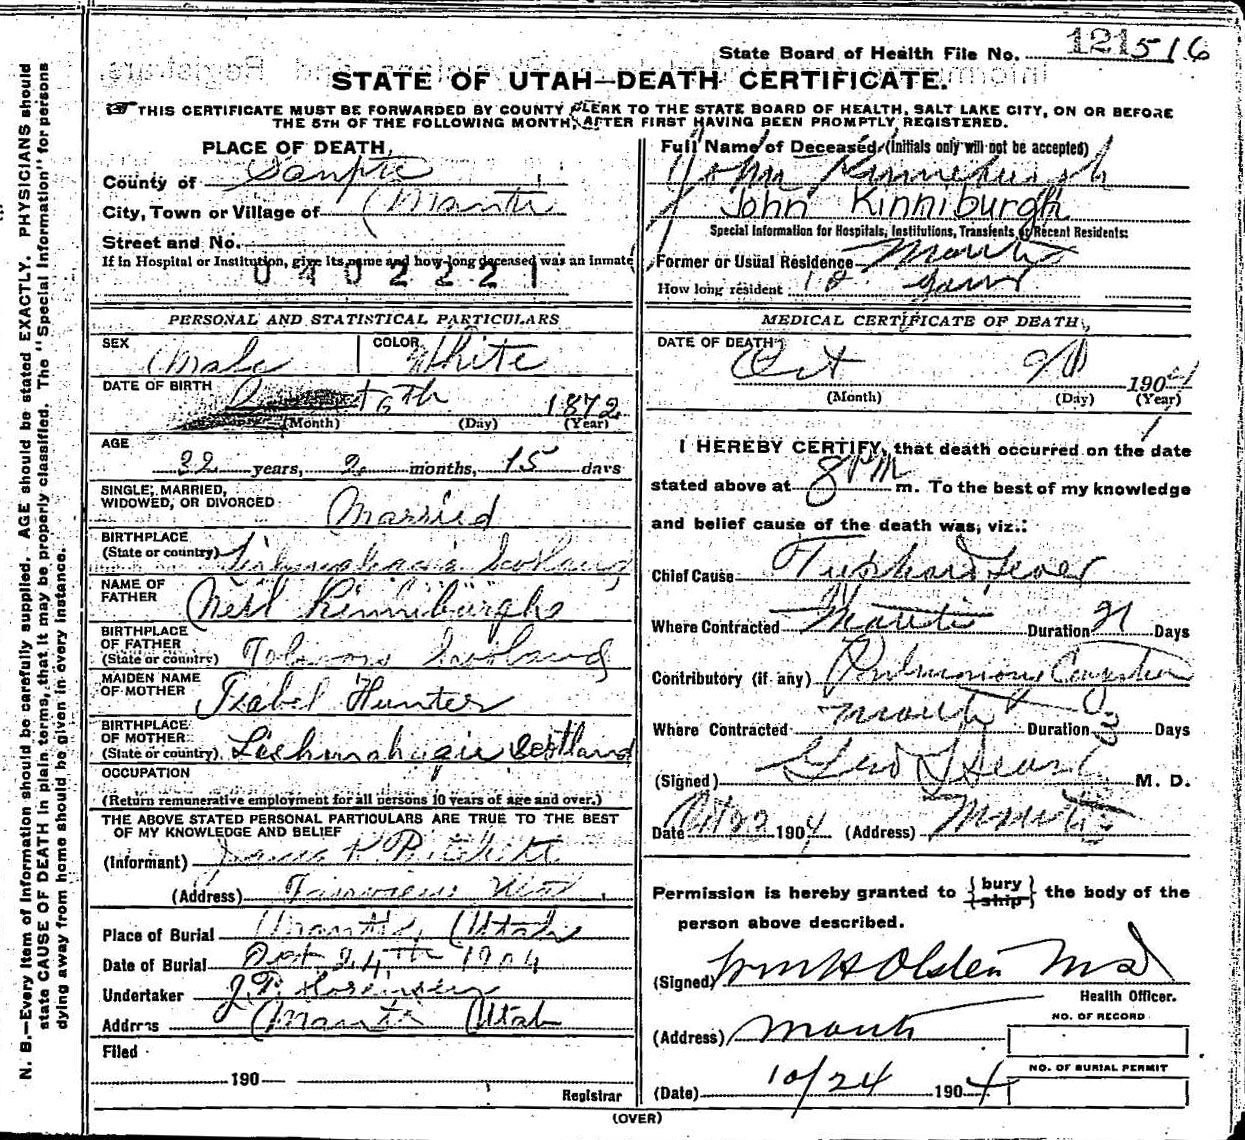 State Board of Health File No. 121516
STATE OF UTAH—DEATH CERTIFICATE.
THIS CERTIFICATE MUST BE FORWARDED BY COUNTY CLERK TO THE STATE BOARD OF HEALTH, SALT LAKE CITY, ON OR BEFORE
THE 5TH OF THE FOLLOWING MONTH, AFTER FIRST HAVING BEEN PROMPTLY REGISTERED.
PLACE OF DEATH,
County of Sanpete
City, Town or Village of Manti
Street and No.
If in Hospital or Institution, give its name and how long deceased was an inmate
0402221
PERSONAL AND STATISTICAL PARTICULARS
SEX Male COLOR White
DATE OF BIRTH 6th 1872
(Month) (Day) (Year)
AGE
32 years, 2 months, 15 days
SINGLE, MARRIED,
WIDOWED, OR DIVORCED Married
BIRTHPLACE
(State or country) Scotland
NAME OF
FATHER Neil Kinniburgh
BIRTHPLACE
OF FATHER
(State or country) Scotland
MAIDEN NAME
OF MOTHER Isabel Hunter
BIRTHPLACE
OF MOTHER
(State or country) Scotland
OCCUPATION
(Return remunerative employment for all persons 10 years of age and over.)
THE ABOVE STATED PERSONAL PARTICULARS ARE TRUE TO THE BEST
OF MY KNOWLEDGE AND BELIEF
(Informant) James
(Address) Fairview Utah
Place of Burial Manti, Utah
Date of Burial Oct 24th 1904
Undertaker J.P.
Address Manti Utah
Filed
190
Registrar
Full Name of Deceased (Initials only will not be accepted)
John Kinneburgh
John Kinniburgh
Special Information for Hospitals, Institutions, Transients or Recent Residents:
Former or Usual Residence Manti
How long resident years
MEDICAL CERTIFICATE OF DEATH
DATE OF DEATH
Oct 1904
(Month) (Day) (Year)
I HEREBY CERTIFY, that death occurred on the date
stated above at 8 PM m. To the best of my knowledge
and belief cause of the death was, viz.:
Chief Cause Typhoid fever
Where Contracted Manti Duration 21 Days
Contributory (if any) Pulmonary Congestion
Where Contracted Manti Duration Days
(Signed) Geo M. D.
Date Oct 22 1904 (Address) Manti
Permission is hereby granted to {bury
ship} the body of the
person above described.
(Signed) Wm H Olsten MD
Health Officer.
(Address) Manti
NO. OF RECORD
(Date) 10/24 1904
NO. OF BURIAL PERMIT
(OVER)
N. B.—Every item of information should be carefully supplied. AGE should be stated EXACTLY. PHYSICIANS should
state CAUSE OF DEATH in plain terms, that it may be properly classified. The "Special Information" for persons
dying away from home should be given in every instance.